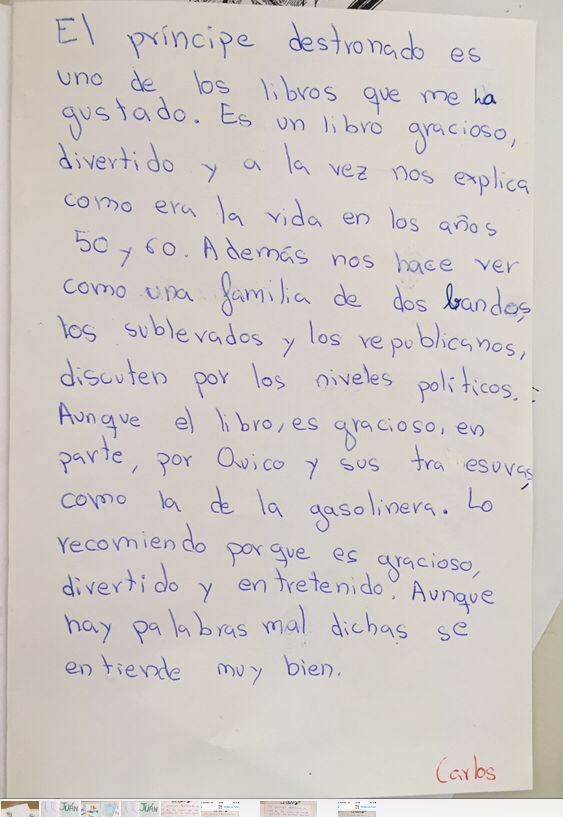 El príncipe destronado es
uno de los libros que me ha
gustado. Es un libro gracioso,
divertido y a la vez nos explica
como era la vida en los años
50 y 60. Además nos hace ver
como una familia de dos bandos,
los sublevados y los republicanos,
discuten por los niveles políticos.
Aunque el libro, es gracioso, en
parte, por Quico y sus tra esuras,
como la de la gasolinera. Lo
recomiendo porque es gracioso,
divertido y entretenido. Aunque
hay palabras mal dichas se
entiende muy bien.
Carlos
JUÁN
JUÁN